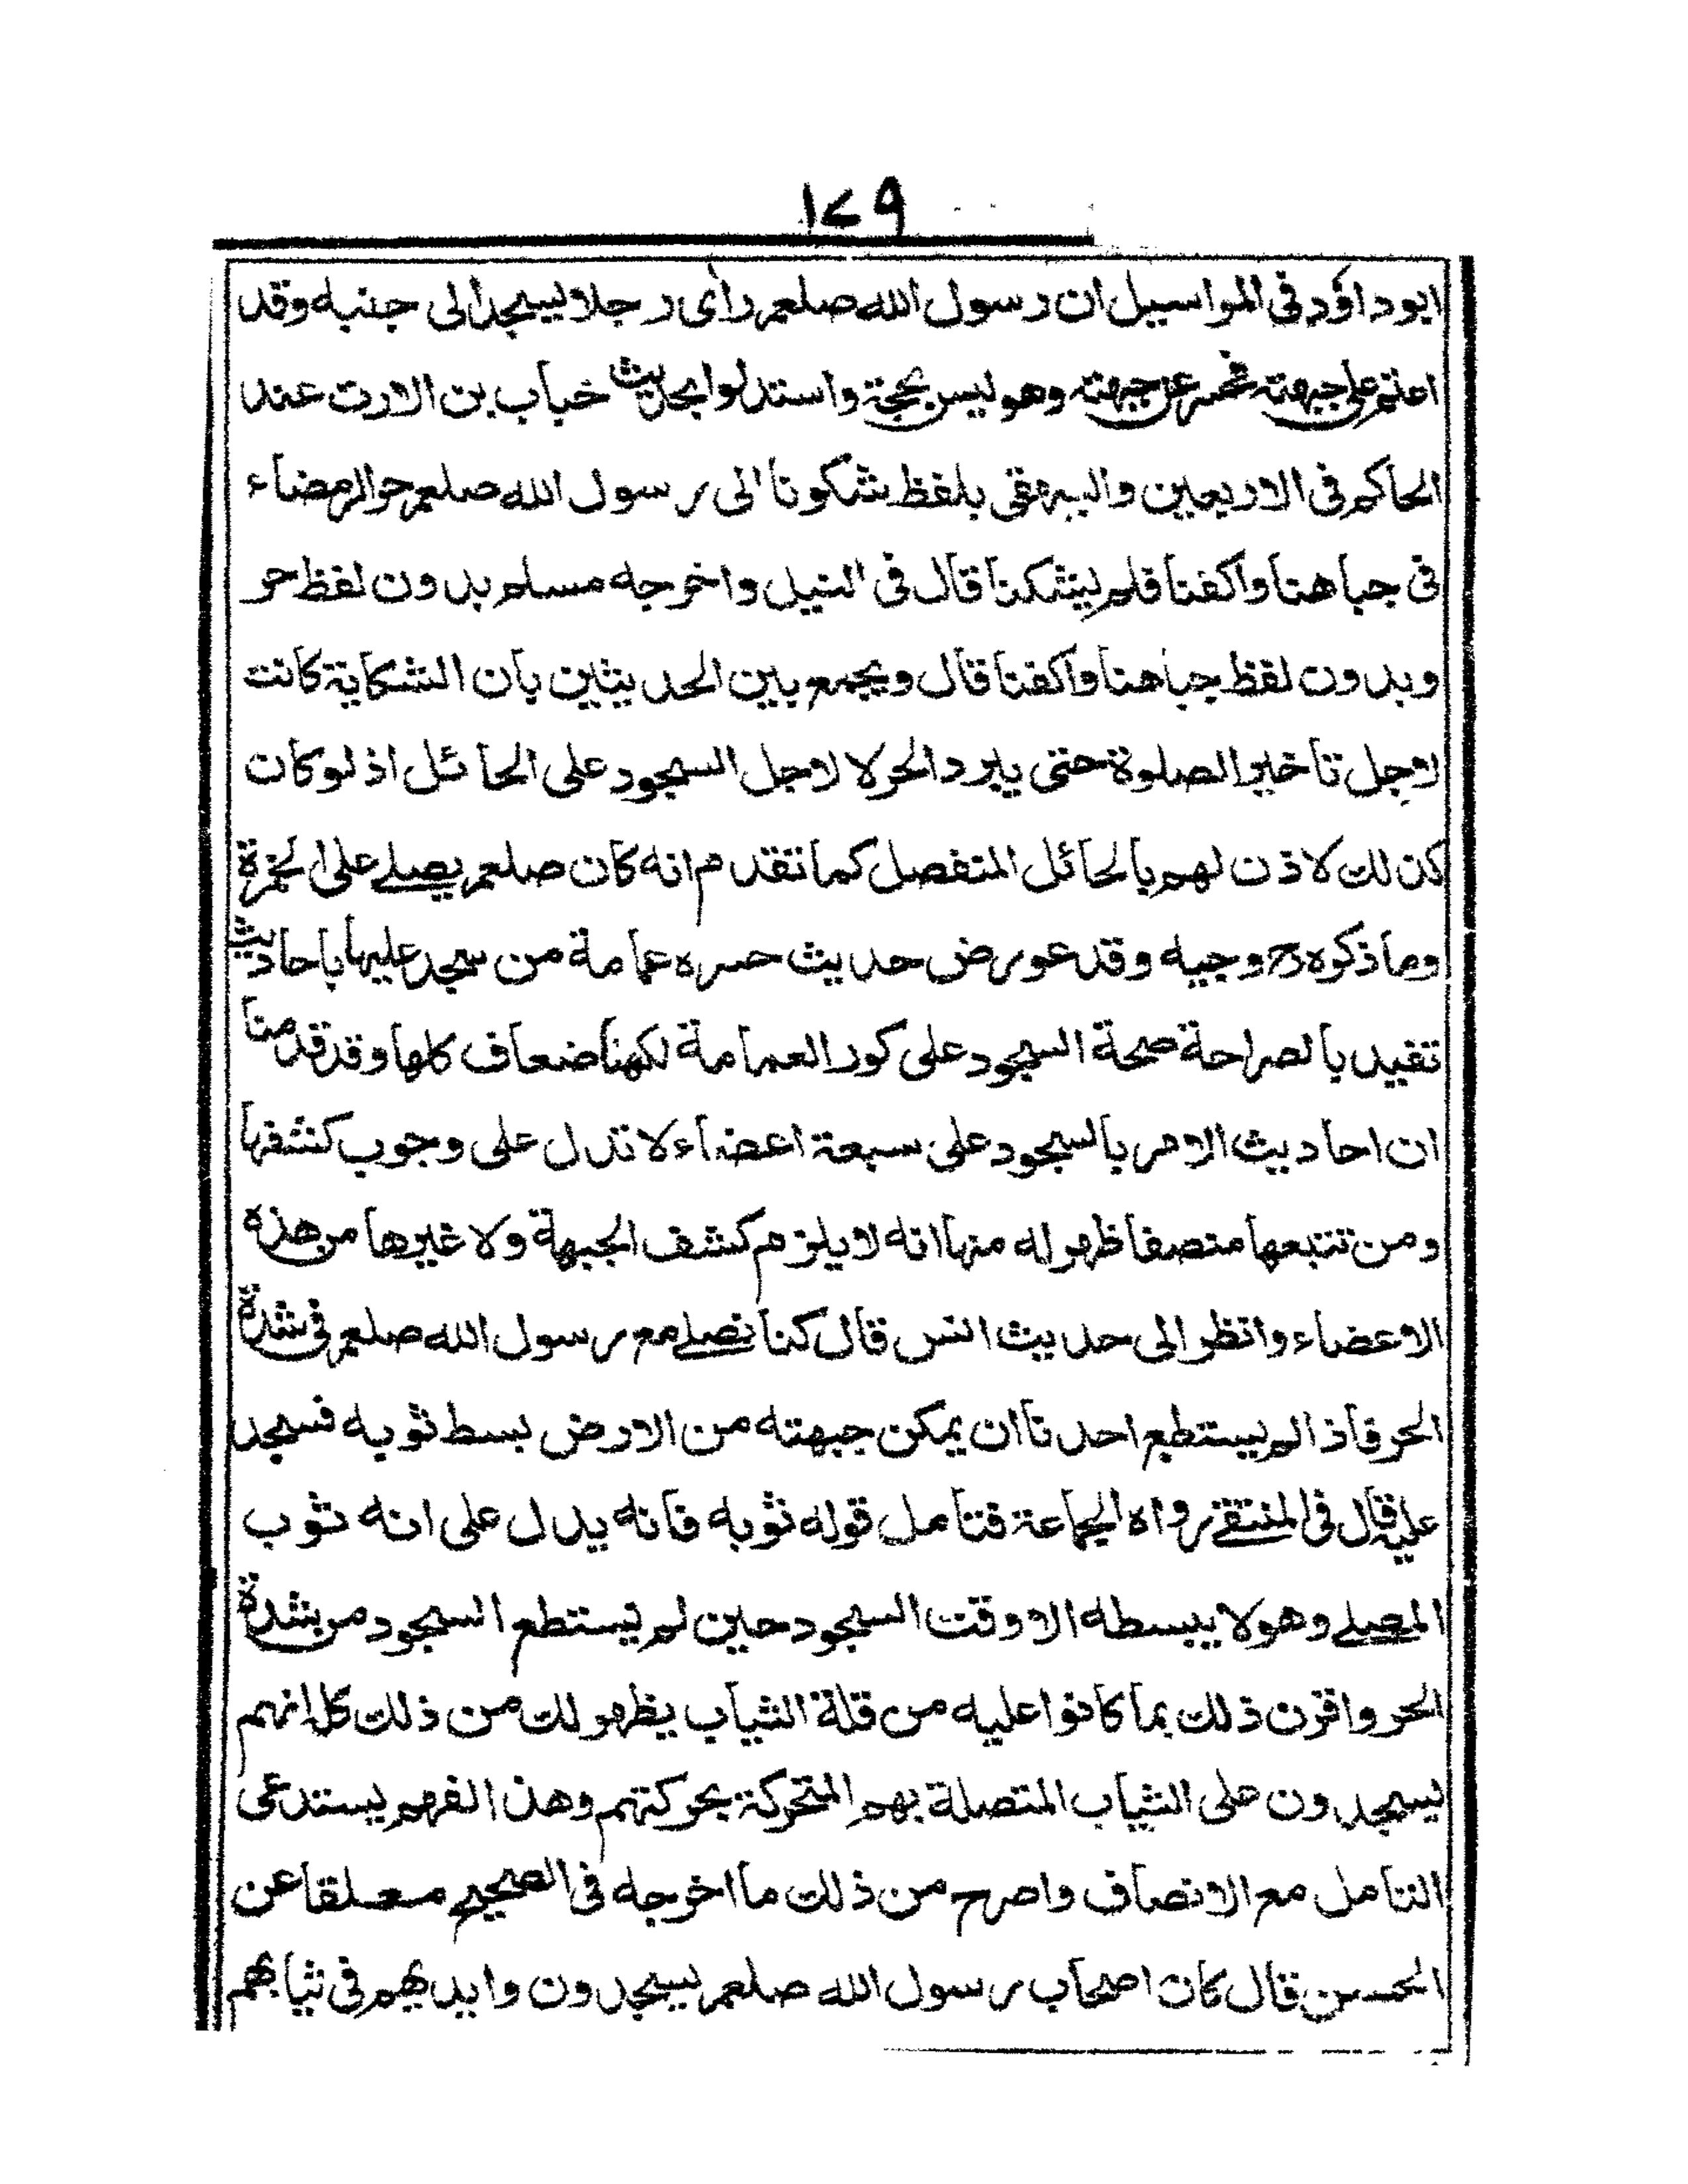 ١٧٩
ابو داؤد فى المراسيل ان رسول الله صلعم رأى رجلا يسجد الى جنبه وقد
اعتم على جبهته فحسر عن جبهته وهو ليس بحجة واستدلوا بحديث خباب بن الارت عند
الحاكم فى الاربعين والبيهقى بلفظ شكونا الى رسول الله صلعم حر الرمضاء
فى جباهنا واكفنا فلم يشكنا قال فى النيل واخرجه مسلم بدون لفظ حر
وبدون لفظ جباهنا واكفنا قال ويجمع بين الحديثين بان الشكاية كانت
لاجل تأخير الصلوة حتى يبرد الحر لا لاجل السجود على الحائل اذ لو كان
كذلك لاذن لهم بالحائل المنفصل كما تقدم انه كان صلعم يصلے على الخمرة
وما ذكره رح وجيه وقد عورض حديث حسره عمامة من سجد عليها باحاديث
تفيد بالصراحة صحة السجود على كور العمامة لكهنا ضعاف كلها وقد قدمنا
ان احاديث الامر بالسجود على سبعة اعضاء لا تدل على وجوب كشفها
ومن تتبعها منصفا ظهر له منها انه لا يلزم كشف الجبهة ولا غيرها من هذه
الاعضاء وانظر الى حديث انس قال كنا نصلے مع رسول الله صلعم فى شدة
الحر فاذا لم يستطع احدنا ان يمكن جبهته من الارض بسط ثوبه فسجد
عليه قال فى المنتقے رواه الجماعة فتأمل قوله ثوبه فانه يدل على انه ثوب
المصلے وهو لا يبسطه الا وقت السجود حين لم يستطع السجود من شدة
الحر واقرن ذلك بما كانوا عليه من قلة الثياب يظهر لك من ذلك كله انهم
يسجدون على الثياب المتصلة بهم المتحركة بحركتهم وهذا الفهم يستدعى
التأمل مع الانصاف واصرح من ذلك ما اخرجه فى الصحيح معلقا عن
الحسن قال كان اصحاب رسول الله صلعم يسجدون وايديهم فى ثيابهم